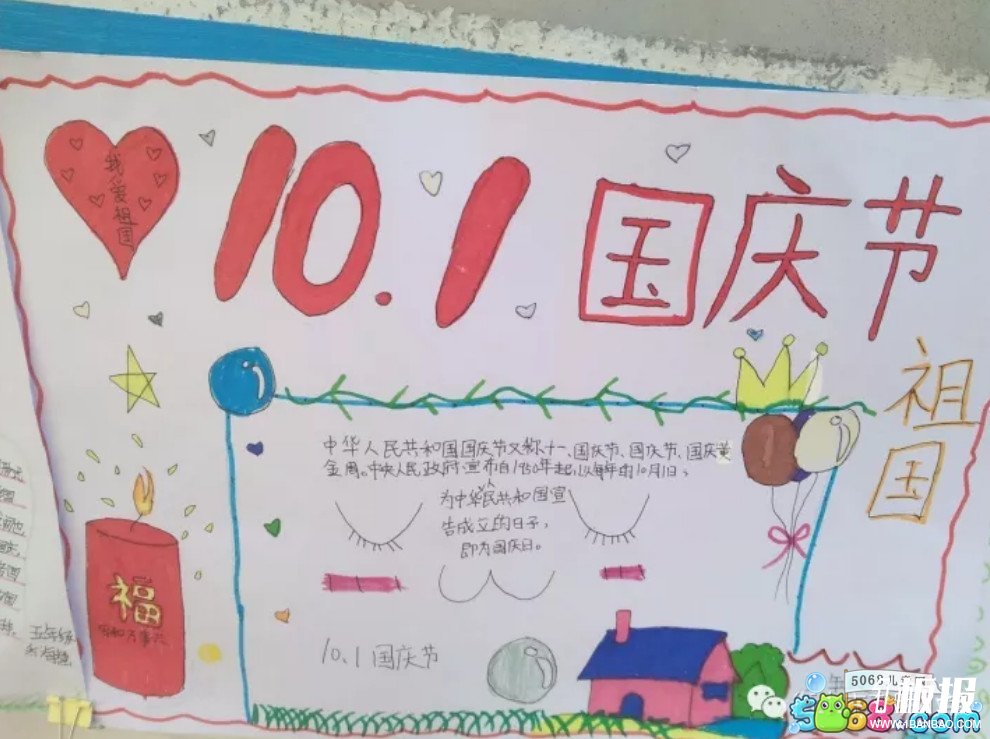 我爱祖国
10.1
国庆节
祖
国
中华人民共和国国庆节又称十一、国庆节、国庆节、国庆黄
金周、中央人民政府宣布自1950年起,以每年的10月1日,
为中华人民共和国宣
告成立的日子,
即为国庆日。
福
10.1 国庆节
五年级
5068儿童网
板报
WWW.1BANBAO.COM
5068.com